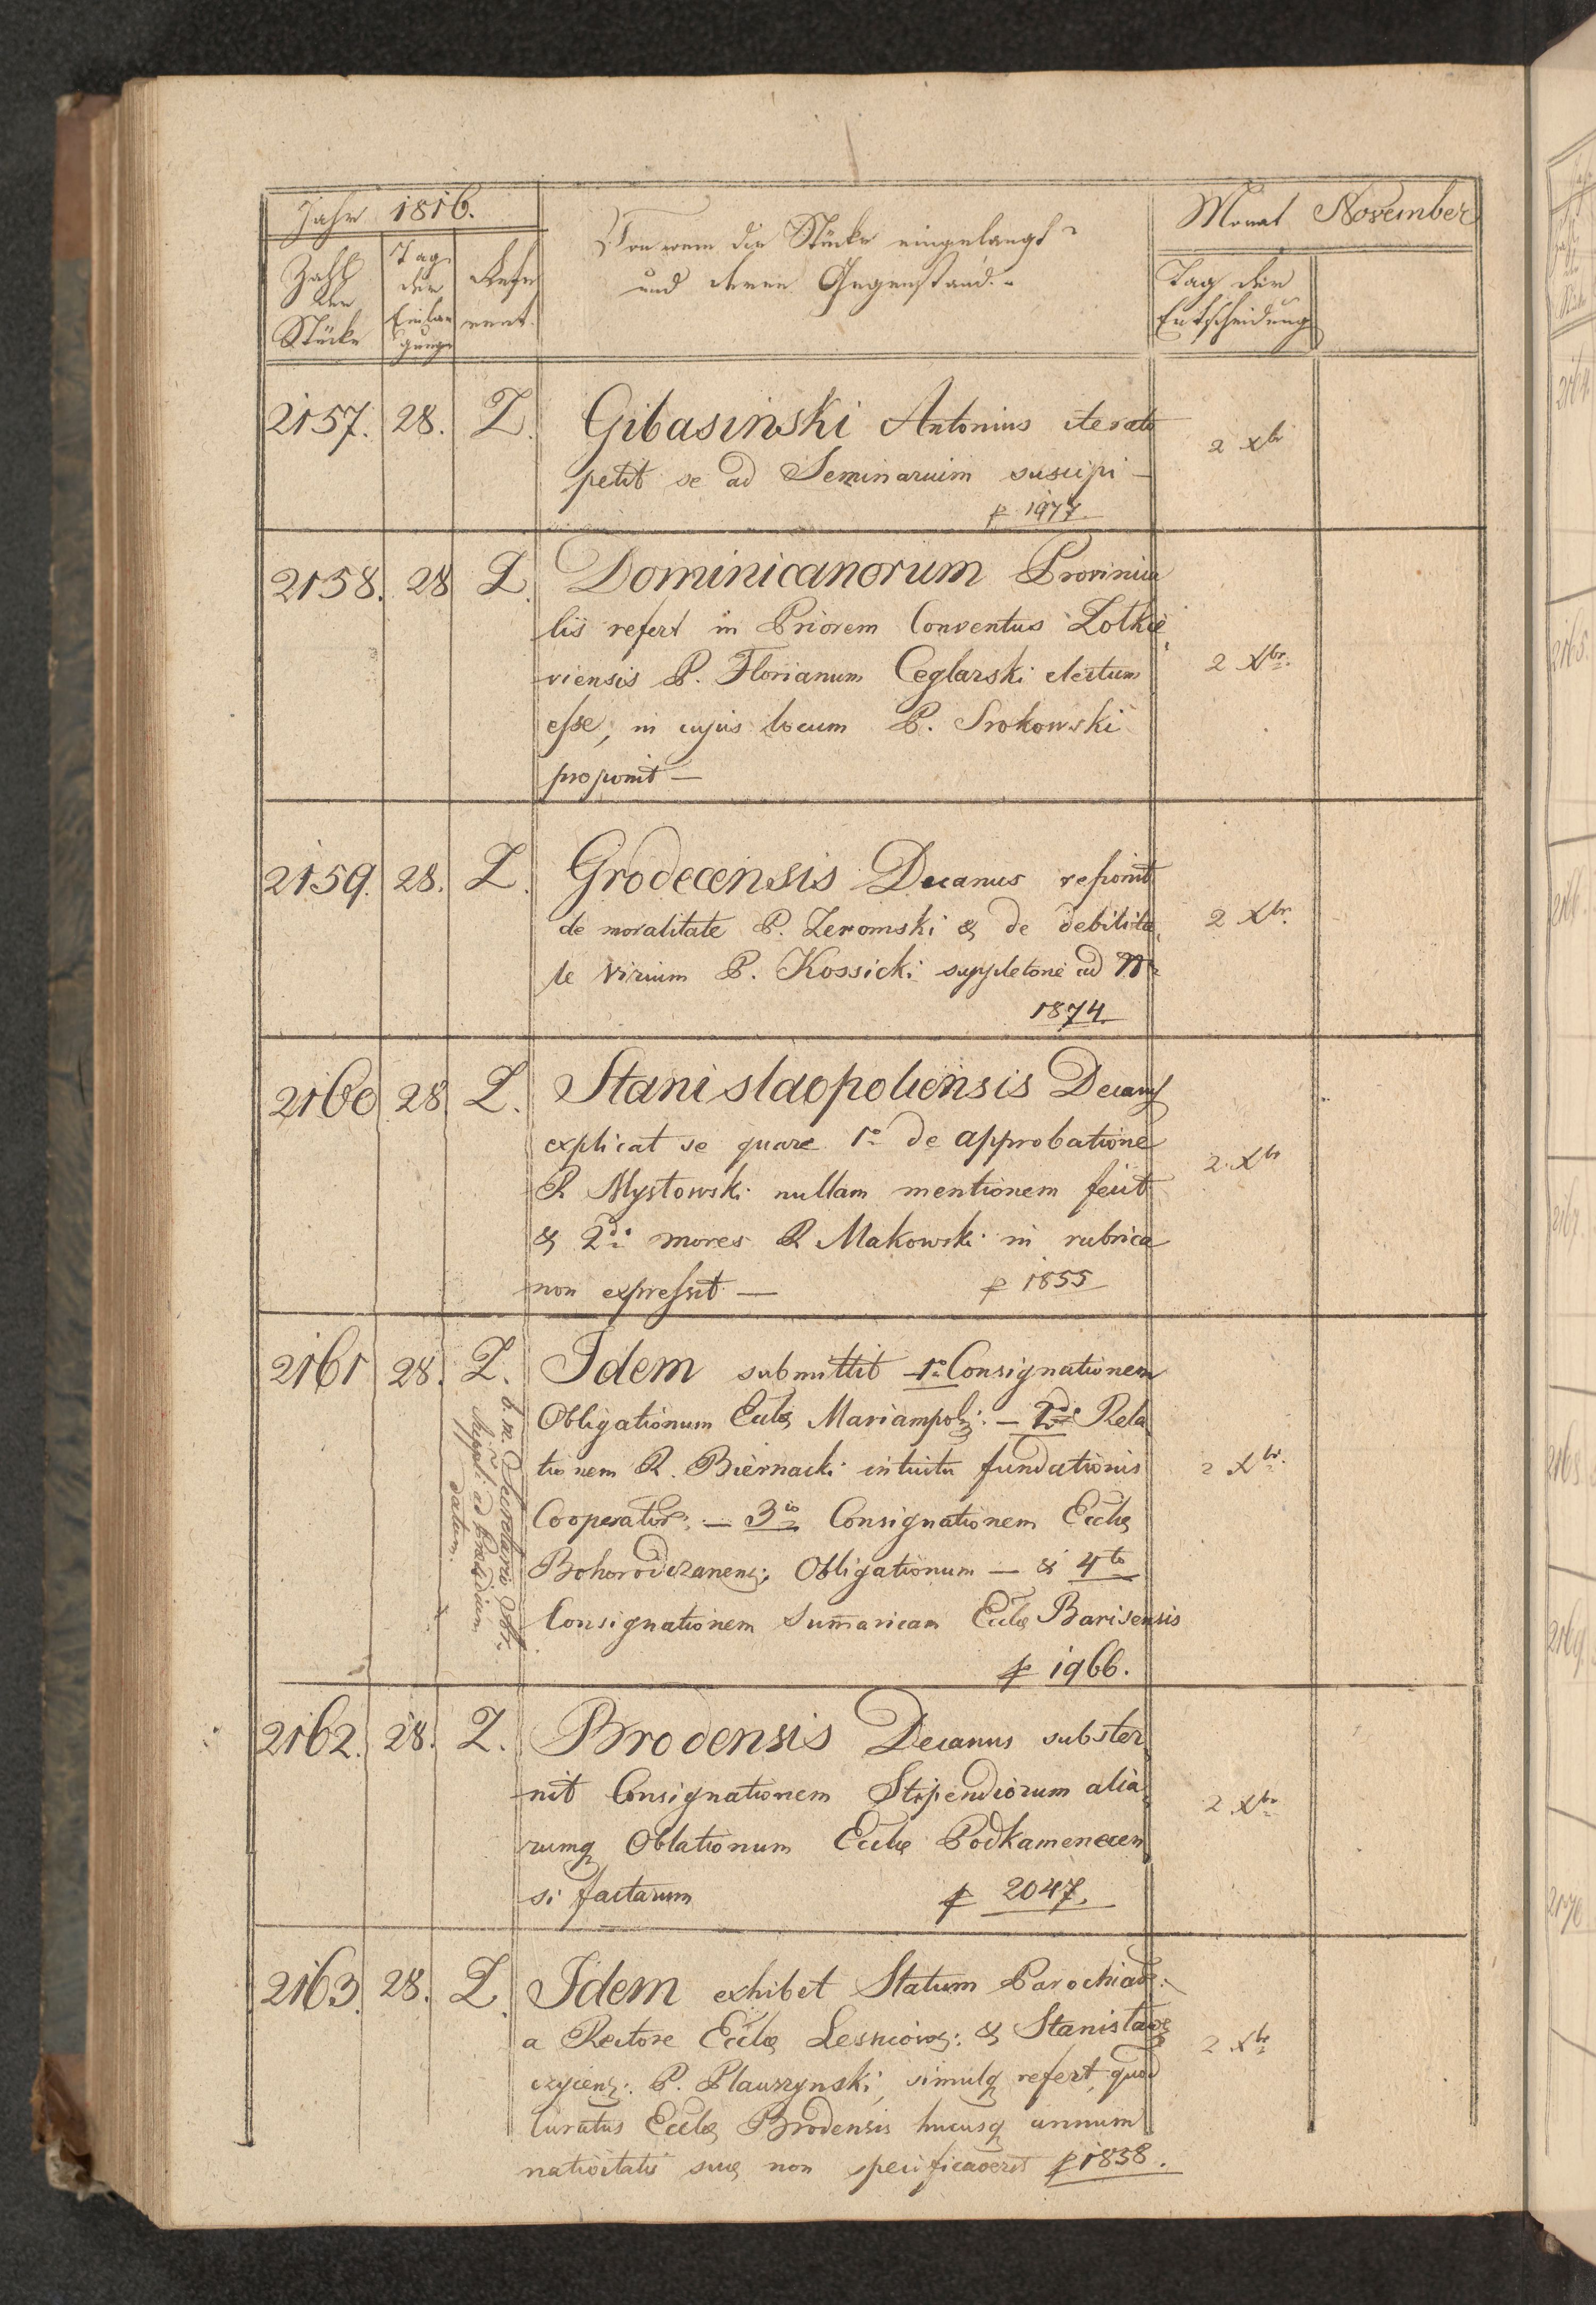 Jahr 1816.
Zahl der Stücke
Tag der Einlangung
Referent.
Von wem die Stücke eingelangt?
und deren Gegenstand.
Monat November
Tag der Entscheidung
2157. 28. Z. Gibasinski Antonius iterato
petit se ad Seminarium suscipi —
p 1977
2 Xbr
2158. 28 Z. Dominicanorum Provincia
lis refert in Priorem Conventus Zolkie
viensis P. Florianum Ceglarski electum
esse, in cujus locum P. Srokowski
proponit —
2 Xbr.
2159. 28. Z. Grodecensis Decanus reponit
de moralitate P. Zeromski & de debilita
te virium P. Kossicki suppletorie ad Nr
1874
2 Xbr.
2160 28 Z. Stanislaopoliensis Decanus
explicat se quare 1o de approbatione
R Mystowski nullam mentionem fecit
& 2do mores R Makowski in rubrica
non expressit — p 1855
2 Xbr
2161 28. Z. Idem submittit 1o Consignationem
Obligationum Eccles Mariampol: — 2do Rela
tionem R. Biernacki intuitu fundationis
Cooperator: — 3io Consignationem Eccles
Bohorodczanens: Obligationum — & 4to
Consignationem Summaricam Eccles Barisensis
p 1966.
2 Xbr.
datum.
2162. 28. Z. Brodensis Decanus subster
nit Consignationem Stipendiorum alia
rumq Oblationum Eccles Podkamenecen
si factarum p 2047.
2 Xbr
2163. 28. Z. Idem exhibet Statum Parochiae:
a Rectore Eccles Lesniovs: & Stanislaw
czycens: P. Plauszynski, simulq refert, quod
Curatus Eccles Brodensis hucusq annum
nativitatis suae non specificaverit p 1838.
2 Xbr